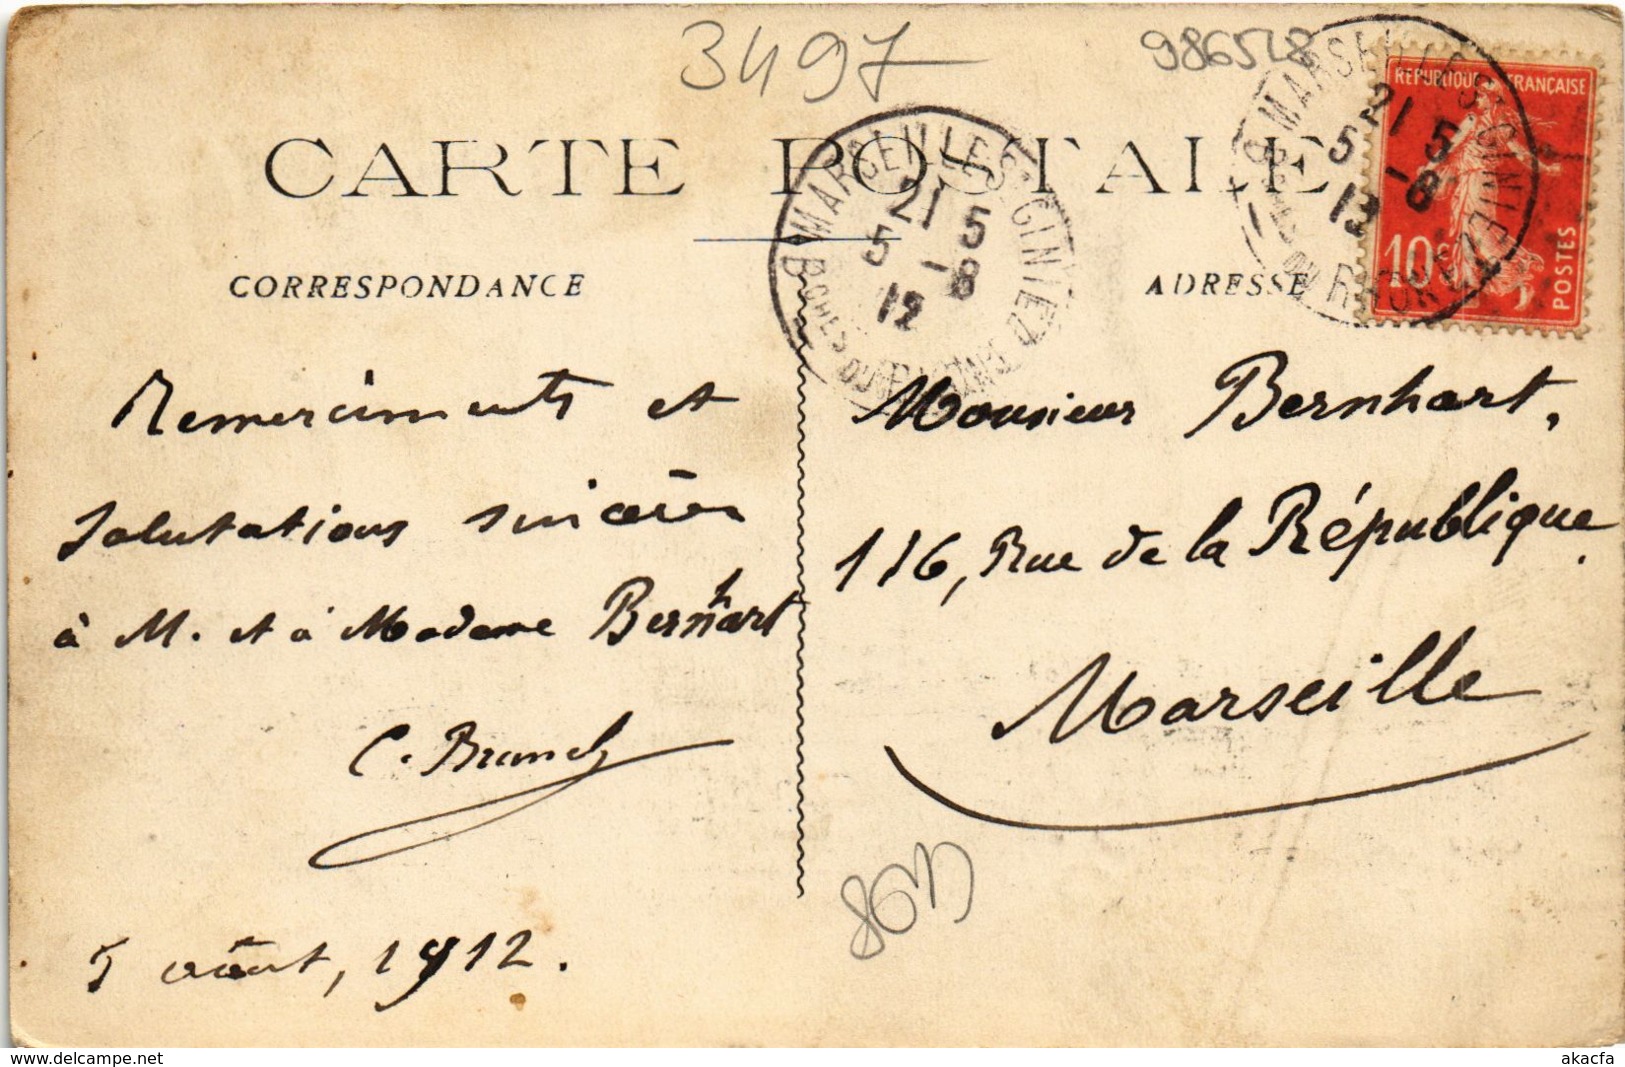 3497
986548
CARTE POSTALE
CORRESPONDANCE
ADRESSE
MARSEILLE ST GINIEZ
21 5
5 -8
12
BCHES DU RHONE
MARSEILLE ST GINIEZ
21 5
5 -8
12
DU RHONE
REPUBLIQUE FRANÇAISE
10c
POSTES
Remerciments et
Salutations sincères
à M. et à Madame Bernhart
5 août, 1912.
Monsieur Bernhart,
116, Rue de la République.
Marseille
www.delcampe.net
akacfa